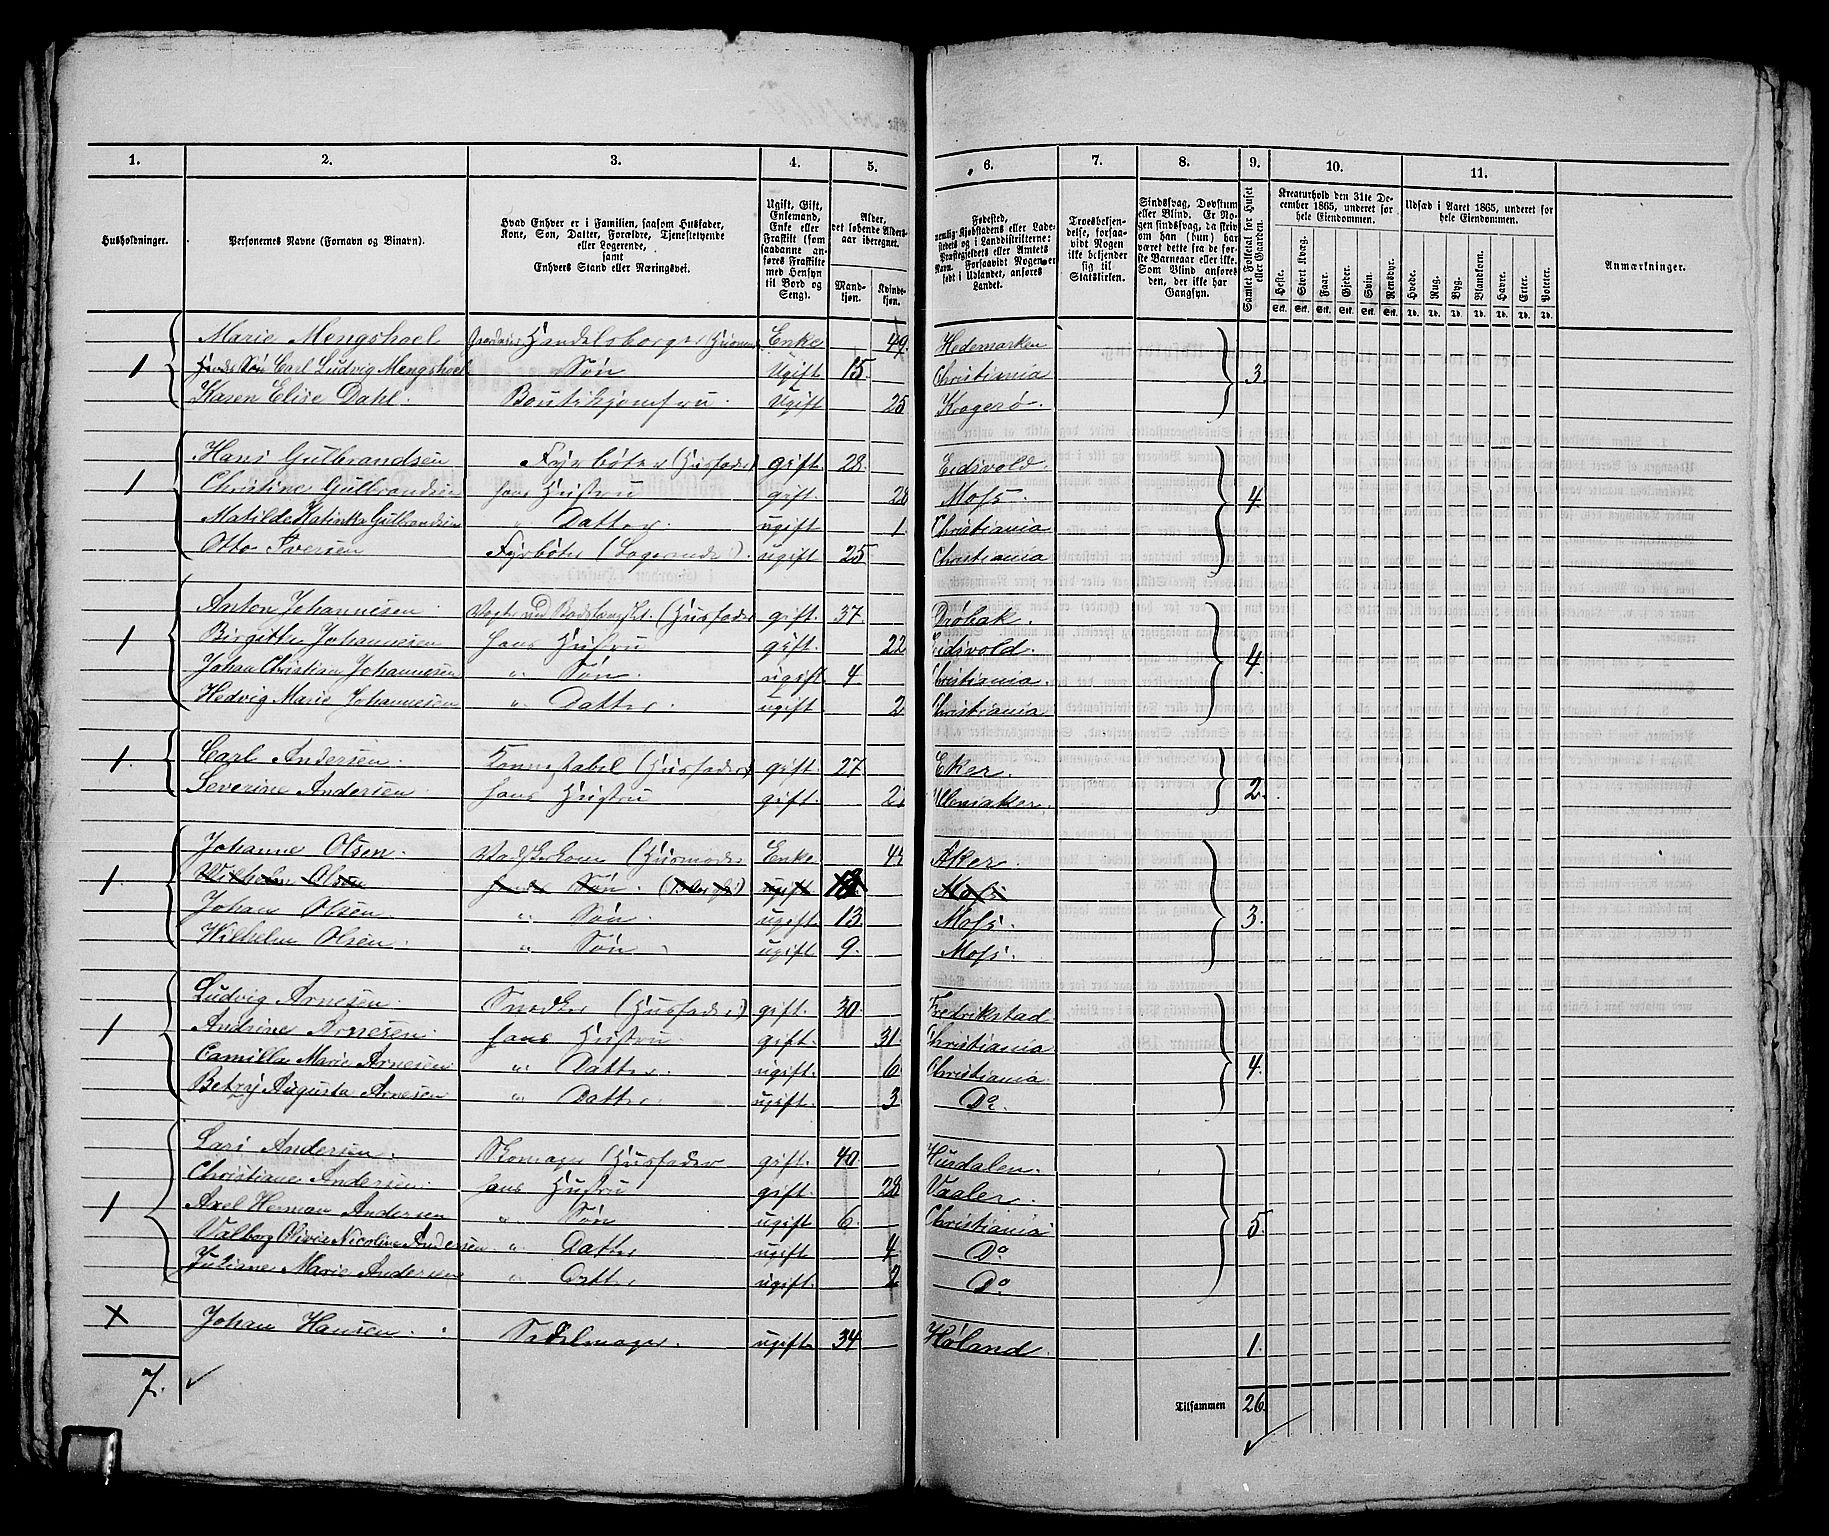 1. 2. 3. 4. 5. 6. 7. 8. 9. 10. 11.
Husholdninger.
Personernes Navne (Fornavn og Binavn).
Hvad Enhver er i Familien, saasom Husfader,
Kone, Søn, Datter, Forældre, Tjenestetyende
eller Logerende,
samt
Enhvers Stand eller Næringsvei.
Ugift, Gift,
Enkemand,
Enke eller
Fraskilt (som
saadanne an-
føres Fraskilte
med Hensyn
til Bord og
Seng).
Alder,
det løbende Alders-
aar iberegnet.
Mand-
kjøn.
Kvinde-
kjøn.
Fødested,
nemlig Kjøbstadens eller Lade-
stedets og i Landdistrikterne:
Præstegjeldets eller Amtets
Navn. Forsaavidt Nogen er
født i Udlandet, anføres
Landet.
Troesbekjen-
delse, forsaa-
vidt Nogen
ikke bekjender
sig til
Statskirken.
Sindssvag, Døvstum
eller Blind. Er No-
gen sindssvag, da skriv
om han (hun) har
været dette fra de før-
ste Barneaar eller ikke.
Som Blind anføres
den, der ikke har
Gangsyn.
Samlet Folketal for Huset
eller Gaarden.
Kreaturhold den 31te De-
cember 1865, underet for
hele Eiendommen.
Heste. Stort Kvæg. Faar. Gjeder. Svin. Rensdyr.
Stk. Stk. Stk. Stk. Stk. Stk.
Udsæd i Aaret 1865, underet for
hele Eiendommen.
Hvede. Rug. Byg. Blandkorn. Havre. Erter. Poteter.
Td. Td. Td. Td. Td. Td. Td.
Anmærkninger.
Marie Mengshoel Handelsborger Enke 49. Hedemarken
1 Hendes Søn Carl Ludvig Mengshoel Søn Ugift 15. Christiania 3.
Karen Elise Dahl. Boutikjomfru. Ugift 25 Kragerø.
Hans Gulbrandsen Fyrbøter (Husfader) gift. 28. Eidsvold.
1 Christine Gulbrandsen hans Hustru gift. 28 Moss. 4
Matilde Katinka Gulbrandsen " Datter. ugift 1. Christiania
Otto Iversen Fyrbøter (Logerende). ugift 25 Christiania
Anton Johannesen. (Husfader) gift. 37. Drøbak.
1 Birgithe Johannesen hans Hustru gift. 22 Eidsvold. 4.
Johan Christian Johannesen " Søn. ugift. 4 Christiania.
Hedvig Marie Johannesen " Datter. ugift. 2 Christiania
1. Carl Andersen. Konnestabel (Husfader) gift. 27 Eker. 2.
Severine Andersen. hans Hustru gift. Ullensaker.
Johanne Olsen. (Husmoder Enke Aker.
1. Wilhelm Olsen Søn. ugift Moss
Johan Olsen. " Søn. ugift. 13 Moss. 3.
Wilhelm Olsen. " Søn. ugift 9. Moss.
Ludvig Arnesen. Snedker (Husfader) gift. 30. Fredrikstad
1 Andrine Arnesen. hans Hustru. gift. 31. Christiania
Camilla Marie Arnesen " Datter. ugift. 6 Christiania. 4.
Betzy Augusta Arnesen " Datter. ugift. 3. Do.
Lars Andersen. Skomager (Husfader gift. 40. Hurdalen.
Christiane Andersen. hans Hustru gift. 28 Vaaler.
1 Axel Herman Andersen " Søn ugift 6. Christiania 5.
Valborg Olivie Nicoline Andersen " Datter ugift 4 Do
Juliane Marie Andersen " Datter ugift. 2 Do.
X Johan Hansen. Sadelmager. ugift. 34 Høland. 1.
7. ✓ Tilsammen 26.
✓